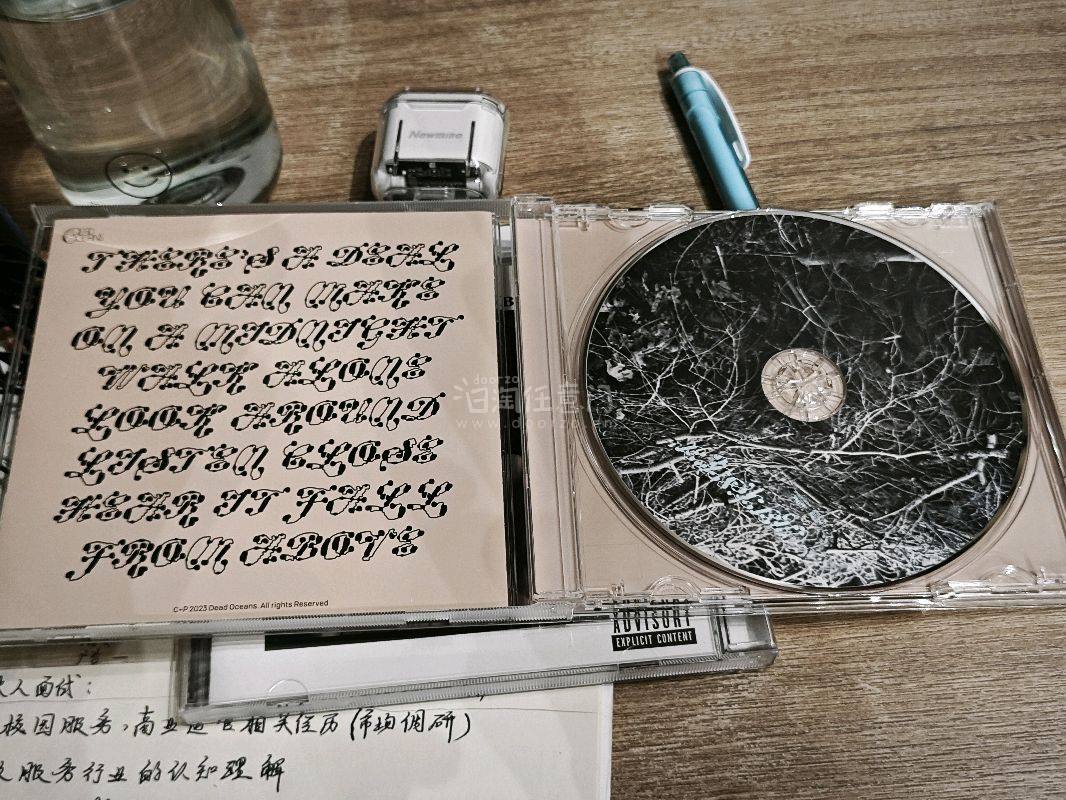 Newmine
THERE'S A DEAL
YOU CAN MAKE
ON A MIDNIGHT
WALK ALONE
LOOK AROUND
LISTEN CLOSE
HEAR IT FALL
FROM ABOVE
C+P 2023 Dead Oceans. All rights Reserved
doorzo
任意门
www.doorzo.com
ADVISORY
EXPLICIT CONTENT
人面试：
校园服务，商业运营相关经历（市场调研）
服务行业的认知理解